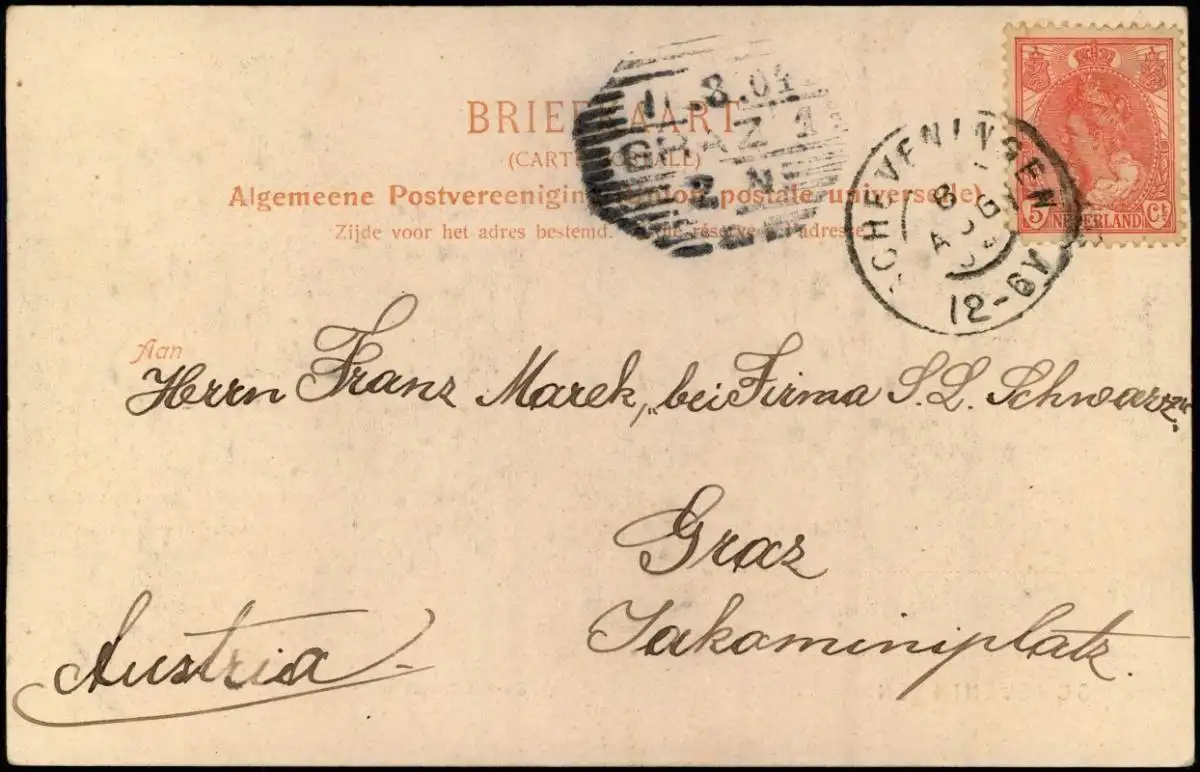 BRIEFKAART
(CARTE POSTALE)
Algemeene Postvereeniging (Union postale universelle)
Zijde voor het adres bestemd. réservé adresse
11.8.04
GRAZ 1
2 N
SCHEVENINGEN
12-6V
5 NEDERLAND Ct
Aan
Herrn Franz Marek, „bei Firma S. L. Schwarz"
Graz
Jakominiplatz.
Austria